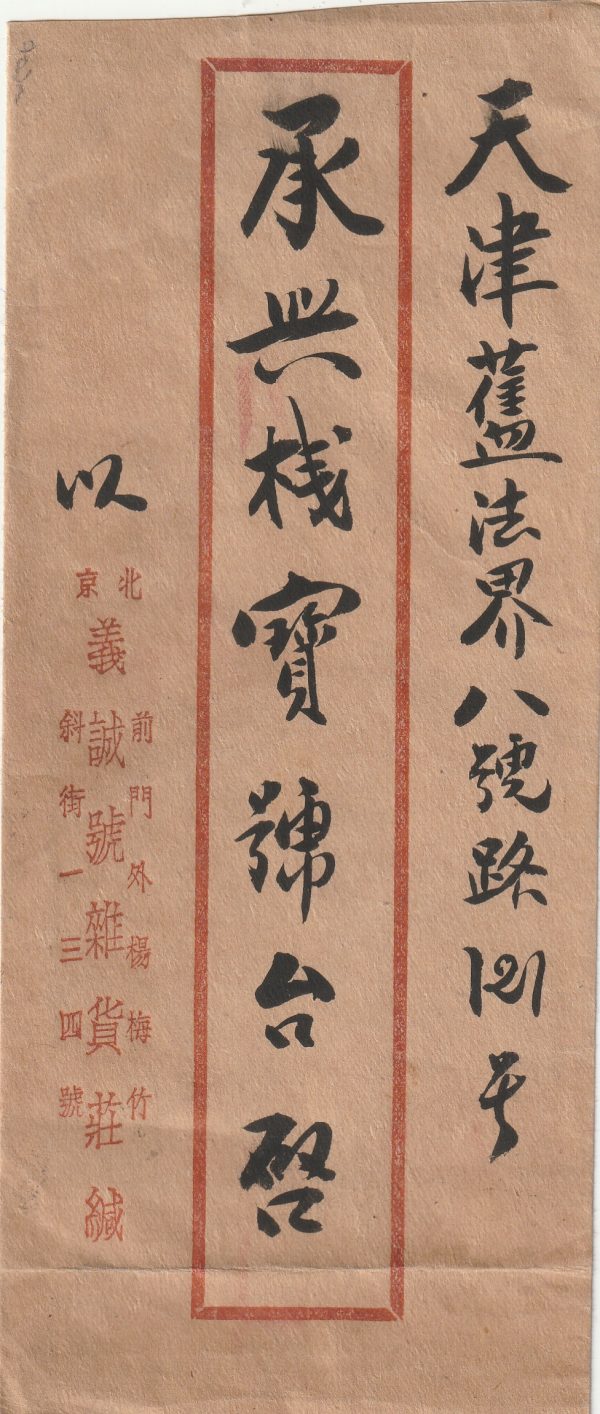 天津舊法界八號路121号
承興栈寶號台啓
以
北京
前門外楊梅竹
義誠號雜貨莊緘
斜街一三四號